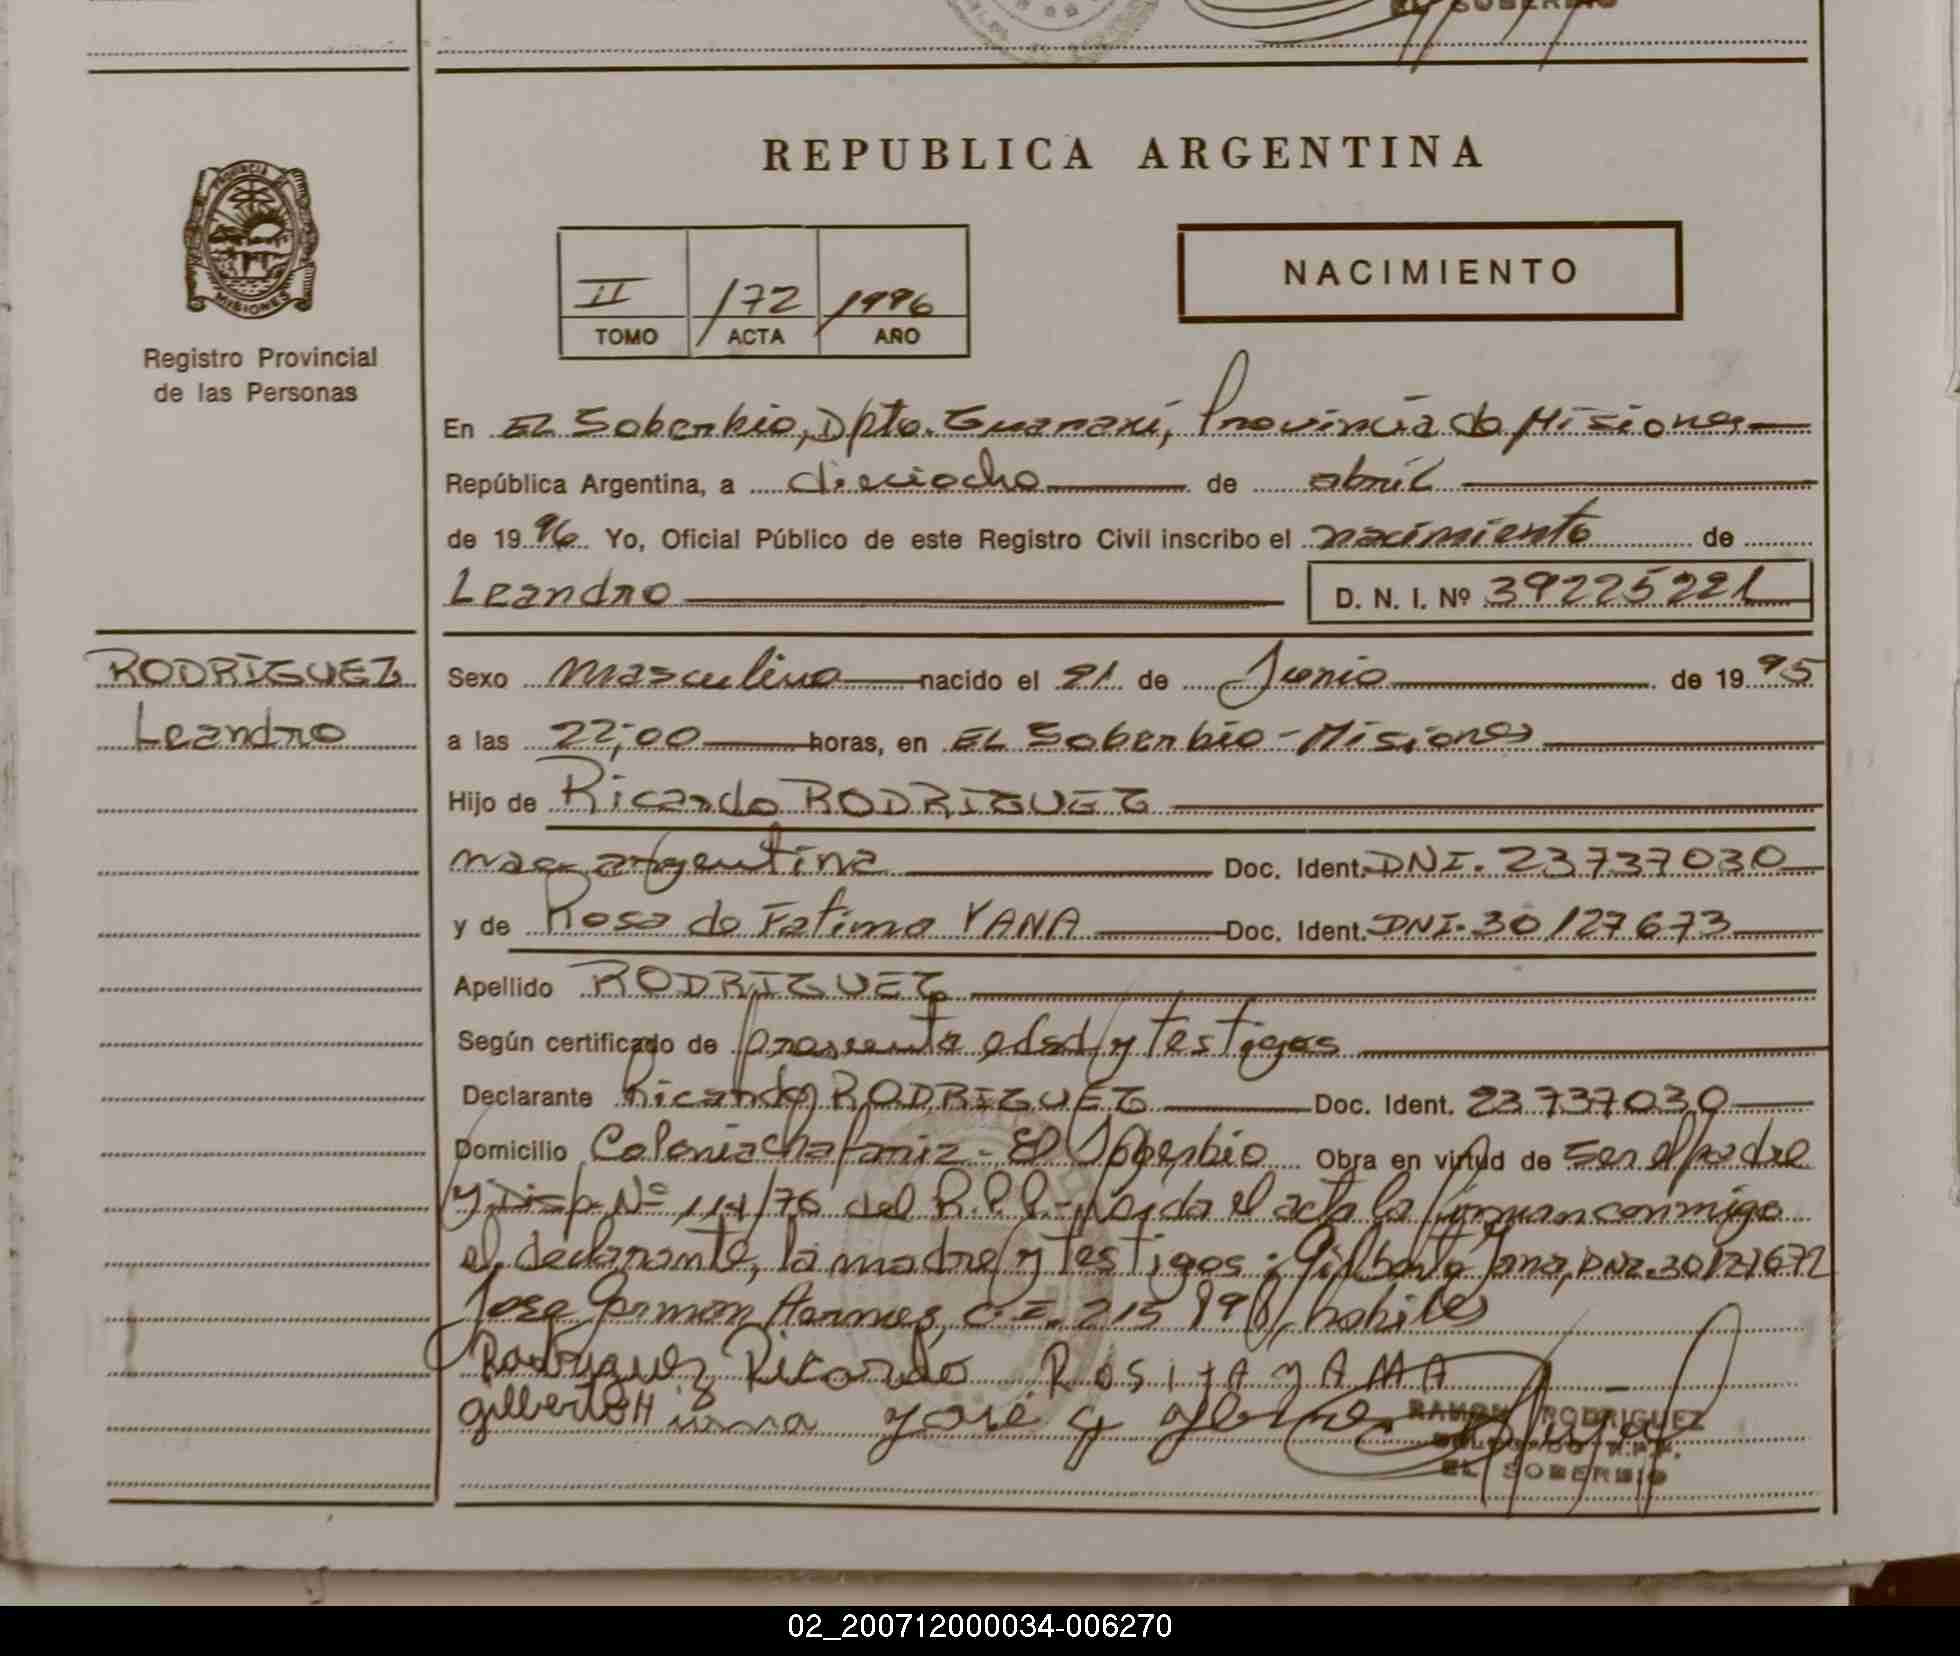 EL SOBERBIO
REPUBLICA ARGENTINA
PROVINCIA DE
MISIONES
Registro Provincial
de las Personas
II 172 1996
TOMO ACTA AÑO
NACIMIENTO
En EL Soberbio, Dpto. Guaraní, Provincia de Misiones
República Argentina, a dieciocho de abril
de 1996 Yo, Oficial Público de este Registro Civil inscribo el nacimiento de
Leandro D. N. I. Nº 39225221
RODRIGUEZ
Leandro
Sexo Masculino nacido el 21 de Junio de 1995
a las 22,00 horas, en EL Soberbio - Misiones
Hijo de Ricardo RODRIGUEZ
nac. argentina Doc. Ident. DNI. 23737030
y de Rosa de Fatima YANA Doc. Ident. DNI. 30127673
Apellido RODRIGUEZ
Según certificado de presunta edad y testigos
Declarante Ricardo RODRIGUEZ Doc. Ident. 23737030
Domicilio Colonia Chafariz - El Soberbio Obra en virtud de ser el padre
y Disp. Nº 114/76 del R.P.P. - Leida el acta la firman conmigo
el declarante, la madre y testigos: Gilberto Jana, DNI. 30127672
Jose German C.I. 215 habiles
Rodriguez Ricardo ROSITA YAMA
gilberto jose g
RAMON RODRIGUEZ
DELEGADO R.P.P.
EL SOBERBIO
02_200712000034-006270